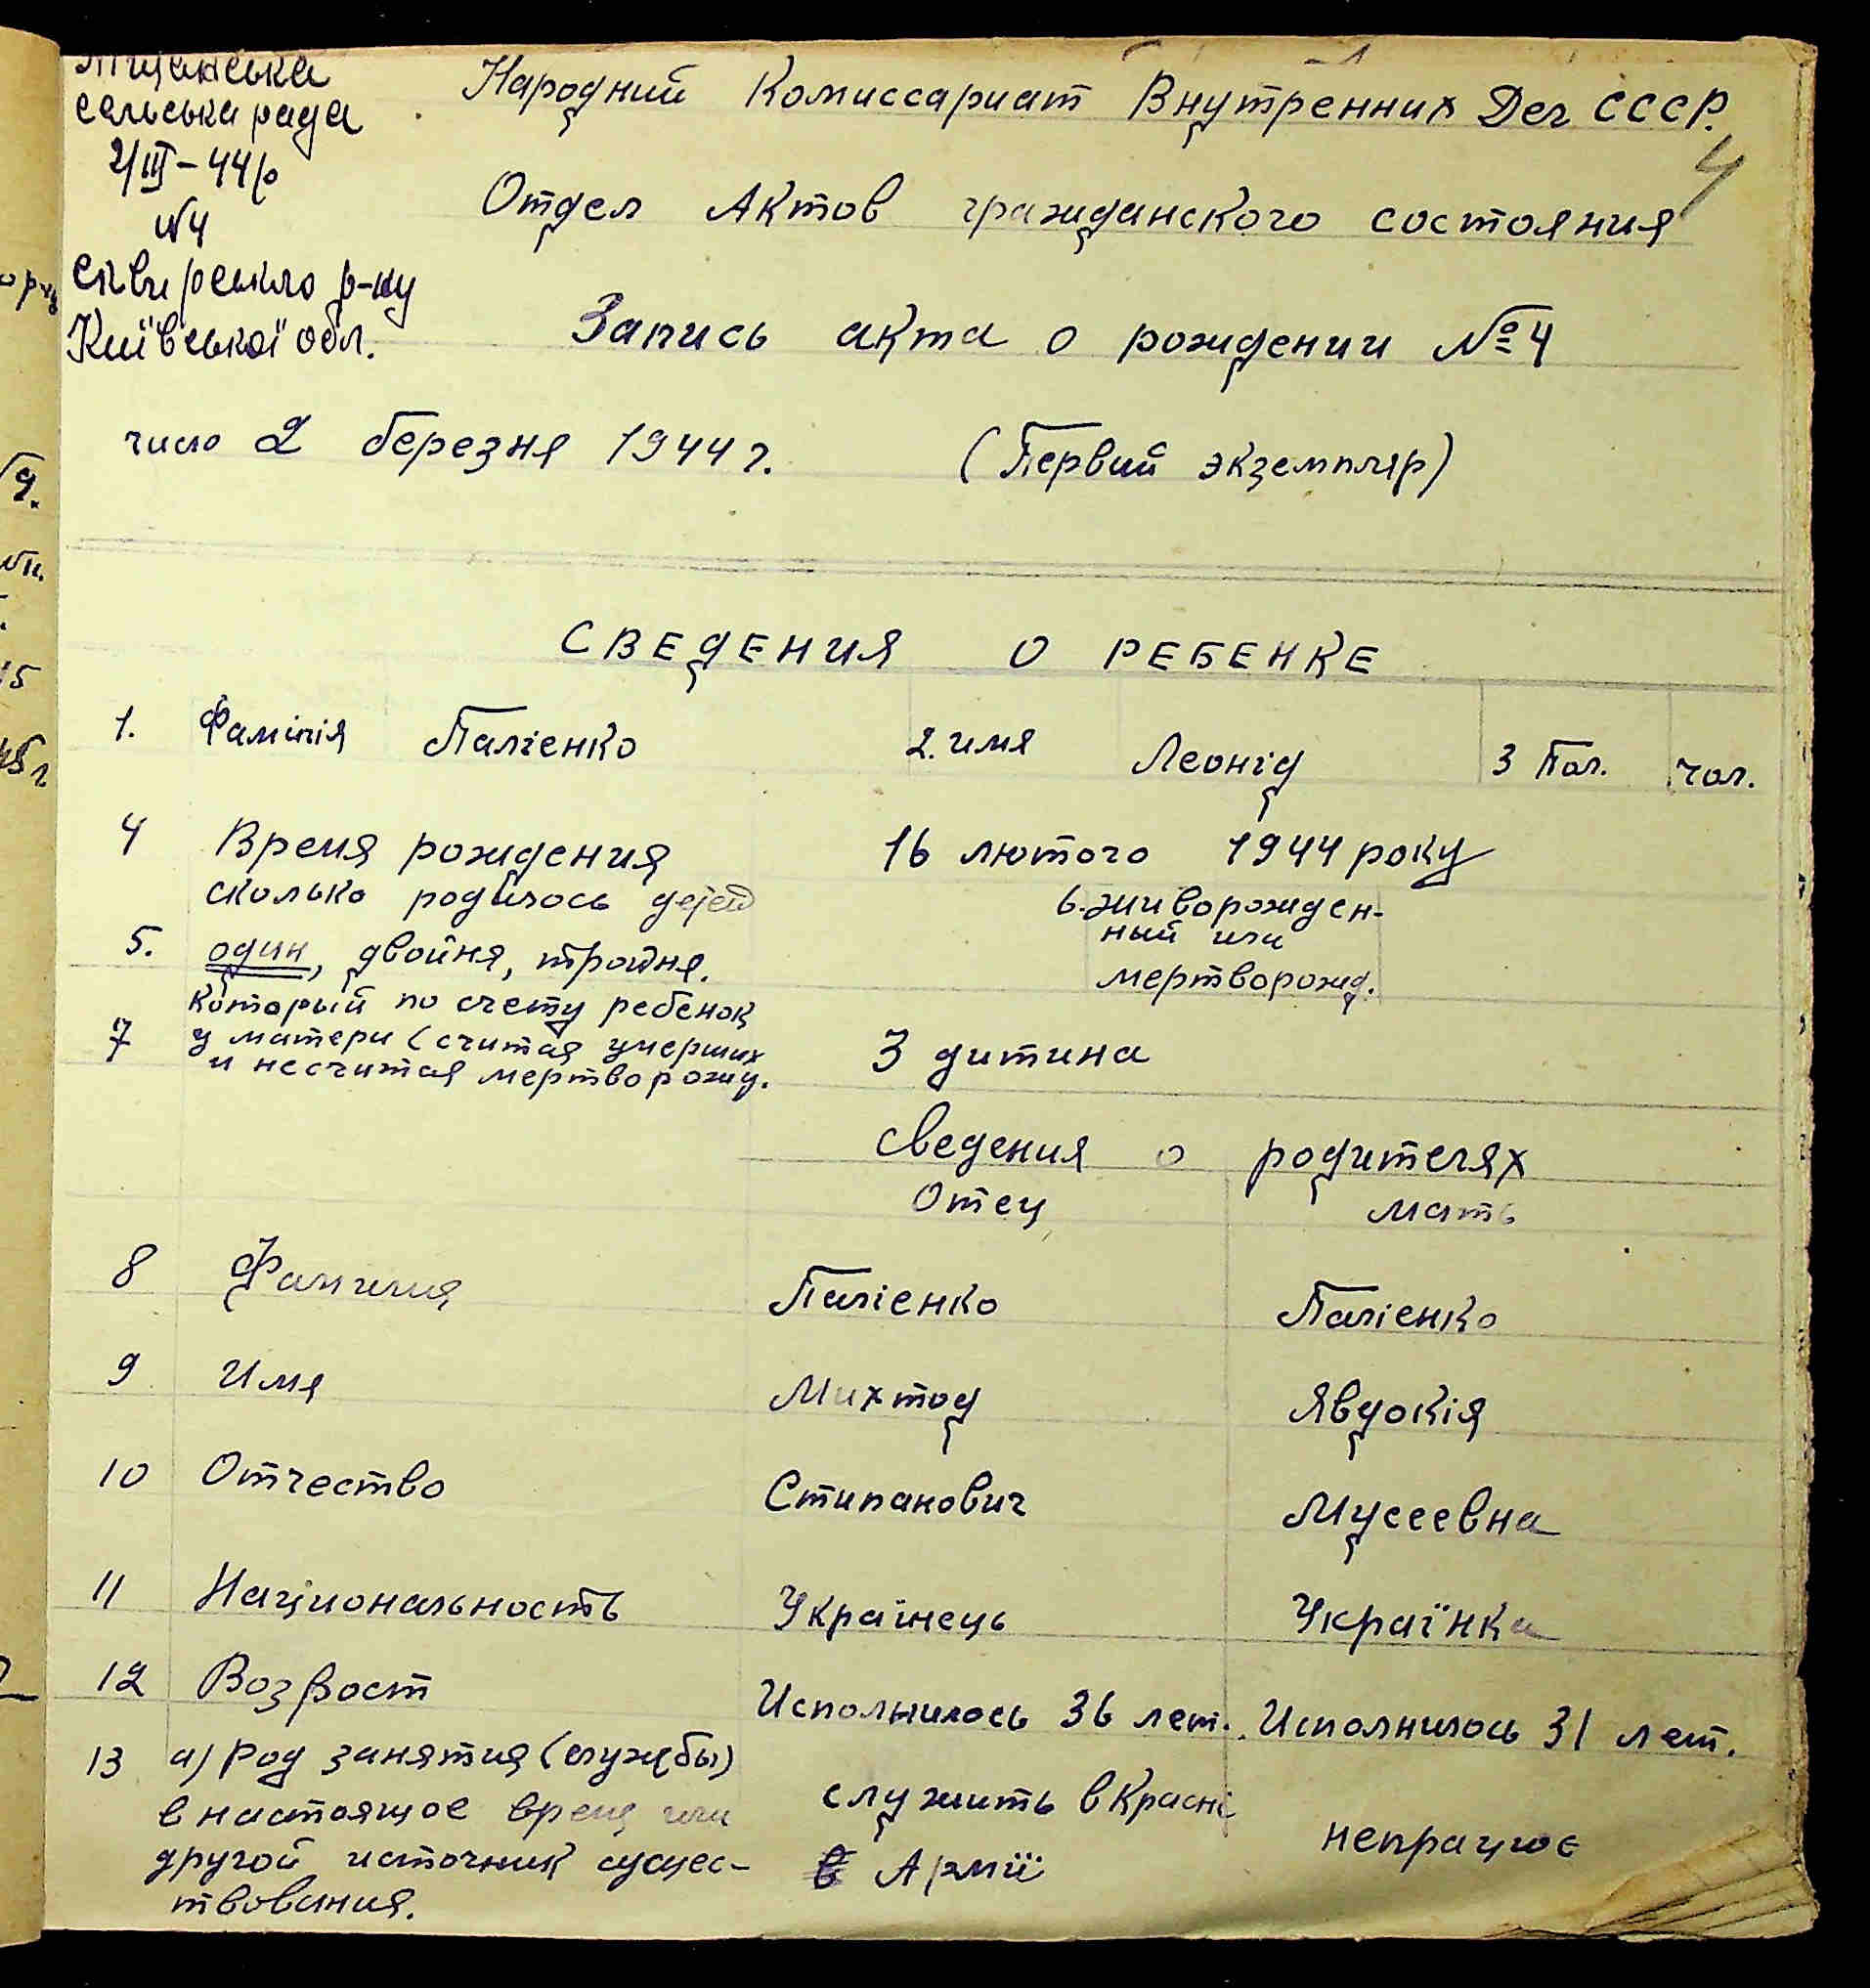 сельська рада
2/III-44р
№4
Сквирського р-ну
Київської обл.
Народний Комиссариат Внутренних Дел СССР.
4
Отдел Актов гражданского состояния
Запись акта о рождении №4
число 2 березня 1944 г.
(Первий экземпляр)
СВЕДЕНИЯ О РЕБЕНКЕ
1. Фамілія Палієнко 2. имя Леонід 3 Пол. чол.
4 Время рождения 16 лютого 1944 року
сколько родилось детей
5. один, двойня, тройня.
6. живорожден-
ный или
мертворожд.
который по счету ребенок
7 у матери (считая умерших
и несчитая мертворожд.
3 дитина
Сведения о родителях
Отец мать
8 Фамилия Палієнко Палієнко
9 Имя Михтод Явдокія
10 Отчество Стипанович Мусеевна
11 Національность Українець Українка
12 Возраст Исполнилось 36 лет. Исполнилось 31 лет.
13 а) род занятия (службы)
в настоящое время или
другой источник сущес-
твования.
служить в Красні
в Армії
непрацює